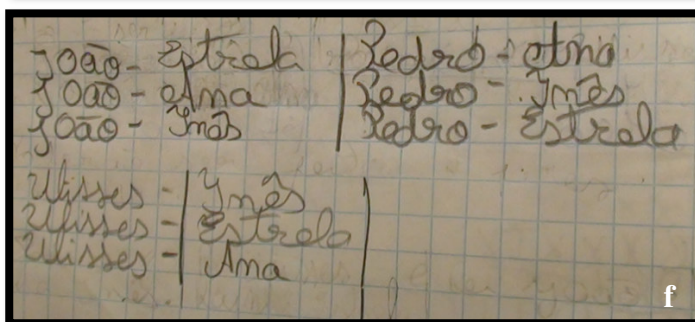 João - Estrela
João - Ana
João - Inês
Pedro - Ana
Pedro - Inês
Pedro - Estrela
Ulisses - Inês
Ulisses - Estrela
Ulisses - Ana
f